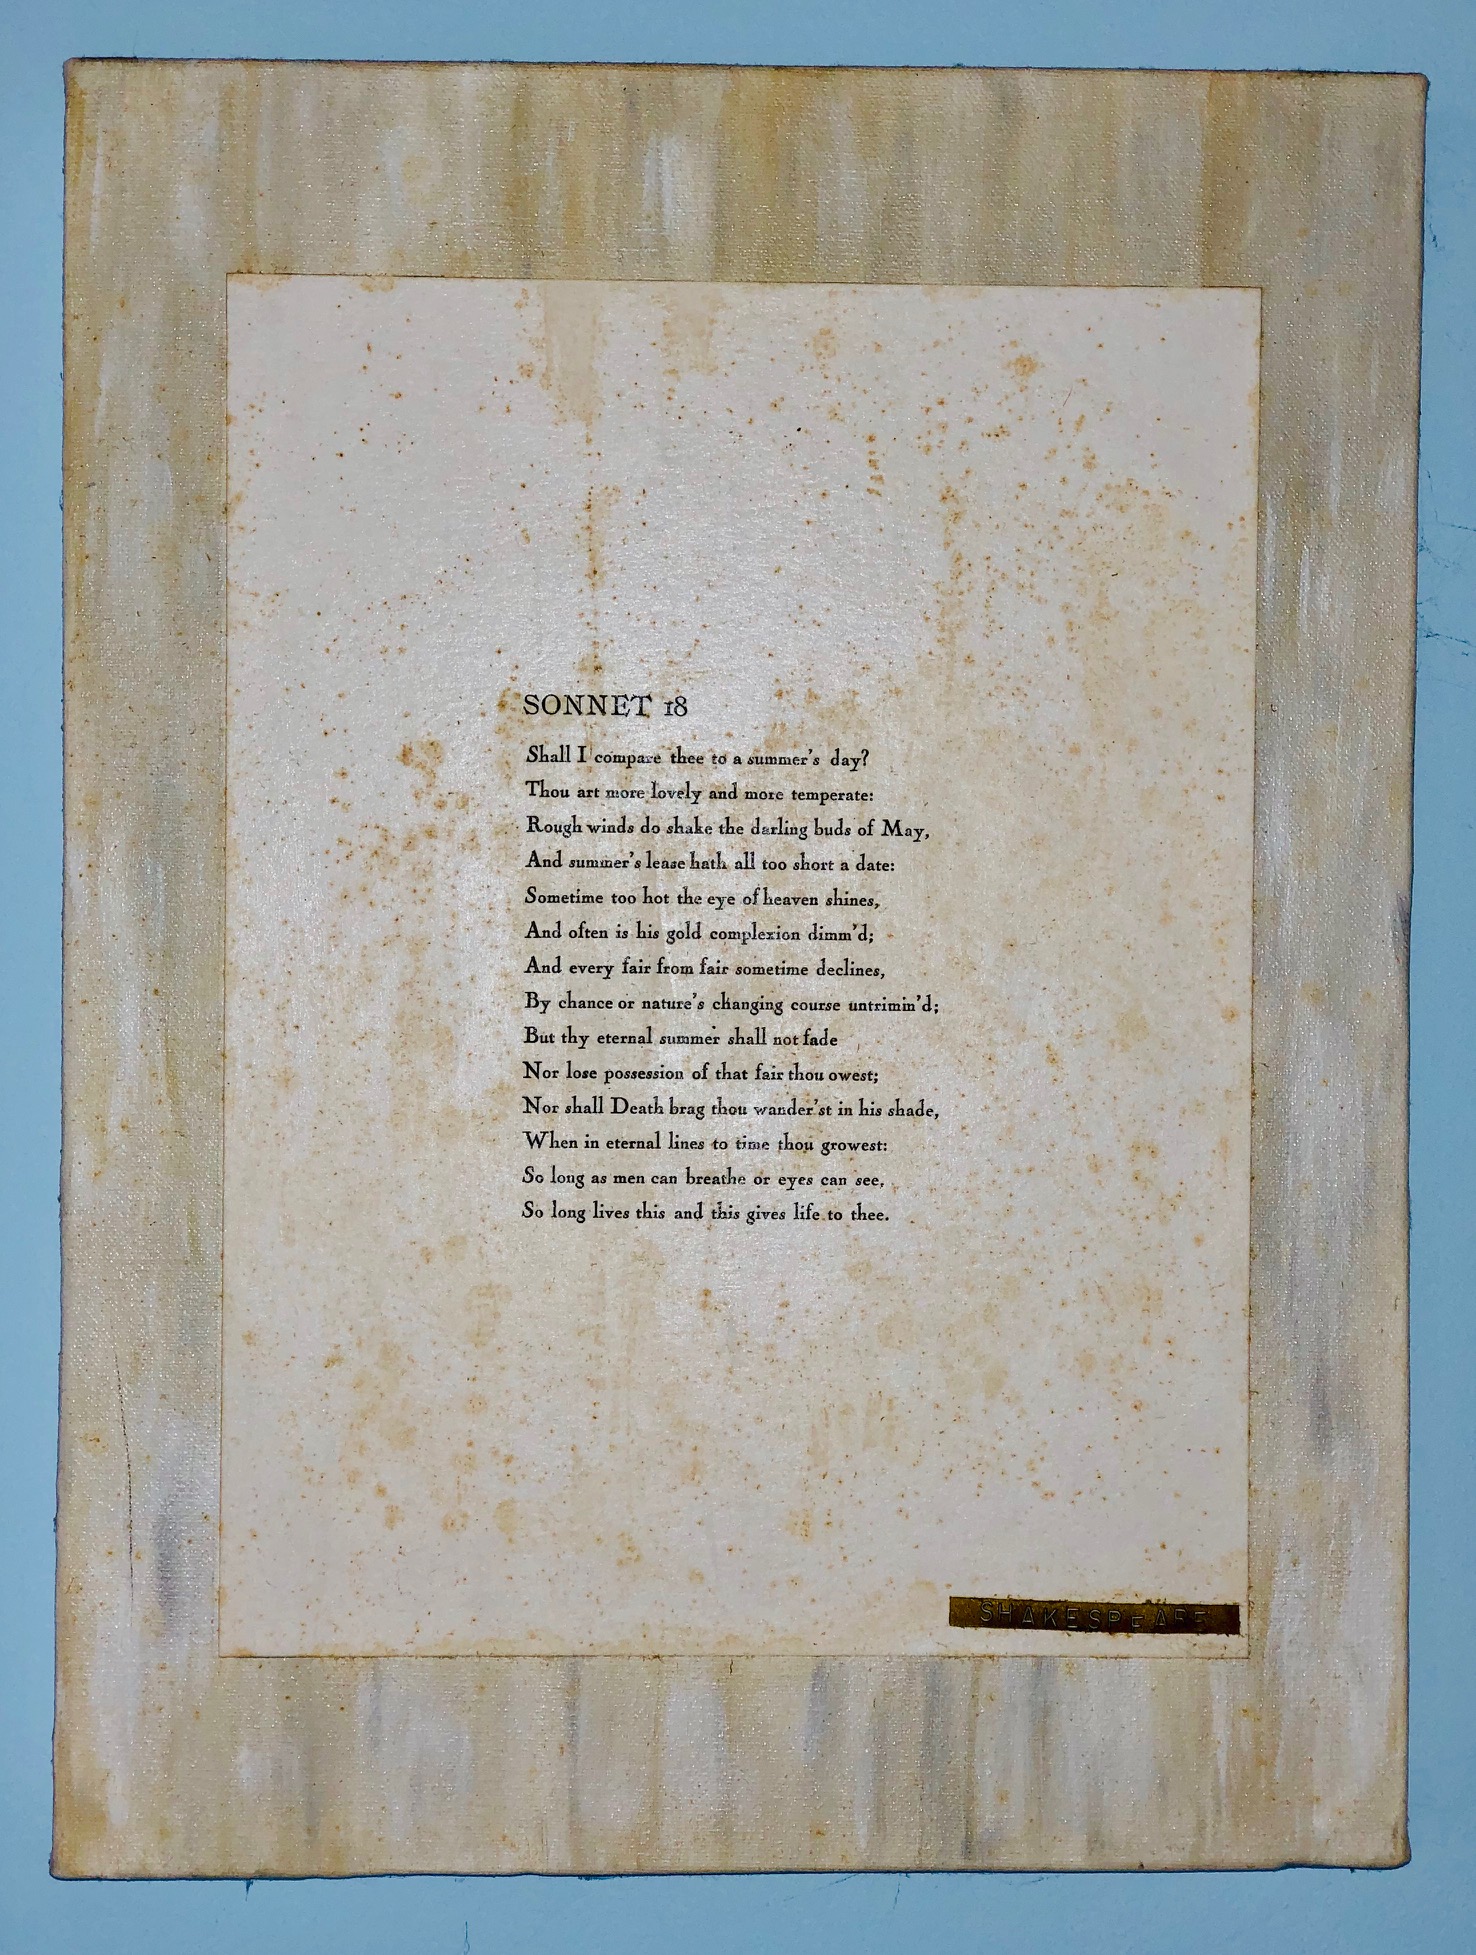 SONNET 18
Shall I compare thee to a summer's day?
Thou art more lovely and more temperate:
Rough winds do shake the darling buds of May,
And summer's lease hath all too short a date:
Sometime too hot the eye of heaven shines,
And often is his gold complexion dimm'd;
And every fair from fair sometime declines,
By chance or nature's changing course untrimin'd;
But thy eternal summer shall not fade
Nor lose possession of that fair thou owest;
Nor shall Death brag thou wander'st in his shade,
When in eternal lines to time thou growest:
So long as men can breathe or eyes can see,
So long lives this and this gives life to thee.
SHAKESPEARE